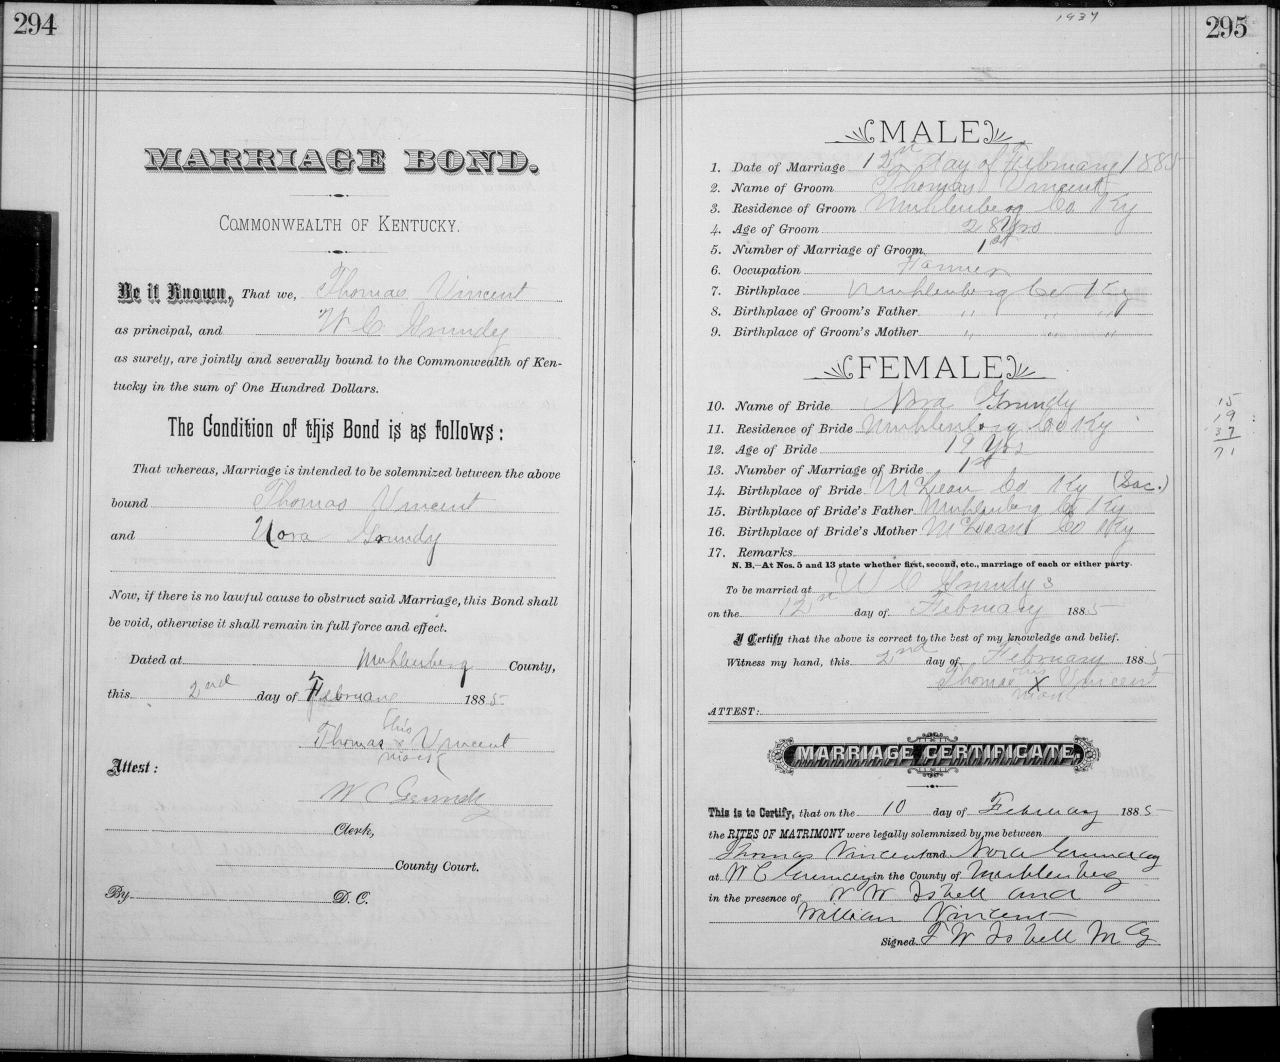 294
MARRIAGE BOND.
COMMONWEALTH OF KENTUCKY.
Be it Known, That we, Thomas Vincent
as principal, and W C Grundy
as surety, are jointly and severally bound to the Commonwealth of Ken-
tucky in the sum of One Hundred Dollars.
The Condition of this Bond is as follows:
That whereas, Marriage is intended to be solemnized between the above
bound Thomas Vincent
and Nora Grundy
Now, if there is no lawful cause to obstruct said Marriage, this Bond shall
be void, otherwise it shall remain in full force and effect.
Dated at Muhlenberg County,
this 2nd day of February 1885
his
Thomas x Vincent
mark
Attest:
W C Grundy
Clerk,
County Court.
By D. C.
1937
295
MALE
1. Date of Marriage 12 day of February 1885
2. Name of Groom Thomas Vincent
3. Residence of Groom Muhlenberg Co Ky
4. Age of Groom 28 Yrs
5. Number of Marriage of Groom 1st
6. Occupation Farmer
7. Birthplace Muhlenberg Co Ky
8. Birthplace of Groom's Father " " "
9. Birthplace of Groom's Mother " " "
FEMALE
10. Name of Bride Nora Grundy
11. Residence of Bride Muhlenberg Co Ky
12. Age of Bride 19 Yrs
13. Number of Marriage of Bride 1st
14. Birthplace of Bride McLean Co Ky (Sac.)
15. Birthplace of Bride's Father Muhlenberg Co Ky
16. Birthplace of Bride's Mother McLean Co Ky
17. Remarks
15
19
37
71
N. B.—At Nos. 5 and 13 state whether first, second, etc., marriage of each or either party.
To be married at W C Grundys
on the 12 day of February 1885
I Certify that the above is correct to the best of my knowledge and belief.
Witness my hand, this 2nd day of February 1885
his
Thomas X Vincent
mark
ATTEST:
MARRIAGE CERTIFICATE.
This is to Certify, that on the 10 day of February 1885
the RITES OF MATRIMONY were legally solemnized by me between
Thomas Vincent and Nora Grundy
at W C Grundey in the County of Muhlenberg
in the presence of W Isbell and
William Vincent
Signed F W Isbell M G